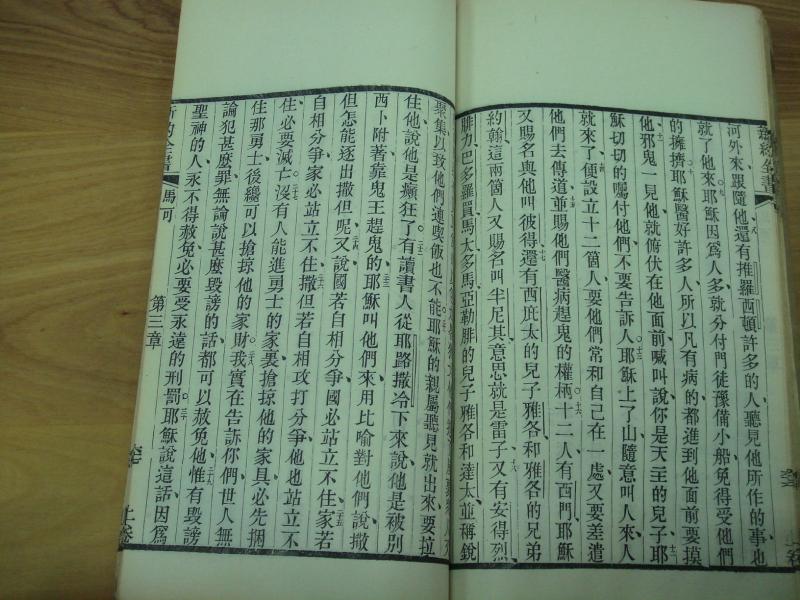 河外來跟隨他還有推羅西頓許多的人聽見他所作的事也
就了他來耶穌因爲人多就分付門徒豫備小船免得受他們
的擁擠耶穌醫好許多人所以凡有病的都進到他面前要摸
他邪鬼一見他就俯伏在他面前喊叫說你是天主的兒子耶
穌切切的囑付他們不要告訴人耶穌上了山隨意叫人來人
就來了便設立十二箇人要他們常和自己在一處又要差遣
他們去傳道並賜他們醫病趕鬼的權柄十二人有西門耶穌
又賜名與他叫彼得還有西庇太的兒子雅各和雅各的兄弟
約翰這兩箇人又賜名叫半尼其意思就是雷子又有安得烈
腓力巴多羅買馬太多馬亞勒腓的兒子雅各和達太並稱銳
聚集以致他們連喫飯也不能耶穌的親屬聽見就出來要拉
住他說他是癲狂了有讀書人從耶路撒冷下來說他是被別
西卜附著靠鬼王趕鬼的耶穌叫他們來用比喻對他們說撒
但怎能逐出撒但呢又說國若自相分爭國必站立不住家若
自相分爭家必站立不住撒但若自相攻打分爭他也站立不
住必要滅亡沒有人能進勇士的家裏搶掠他的家具必先捆
住那勇士後纔可以搶掠他的家財我實在告訴你們世人無
論犯甚麼罪無論說甚麼毀謗的話都可以赦免他惟有毀謗
聖神的人永不得赦免必要受永遠的刑罰耶穌說這話因爲
新約全書 馬可 第三章 上卷